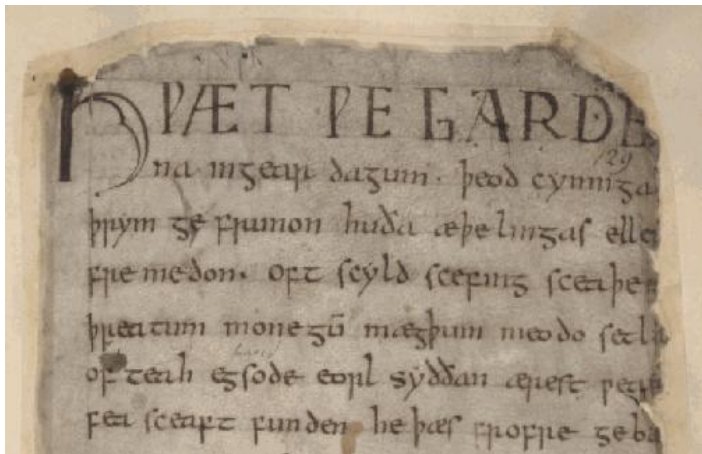 HǷÆT ǷE GARDE
na ingear dagum · þeod cyninga
þrym ge frunon huða æþelingas elle
fremedon. oft scyld scefing sceaþe
þreatum monegū mægþum meodo setla
of teah egsode eorl syððan ærest ƿear
fea sceaft funden he þæs frofre geba